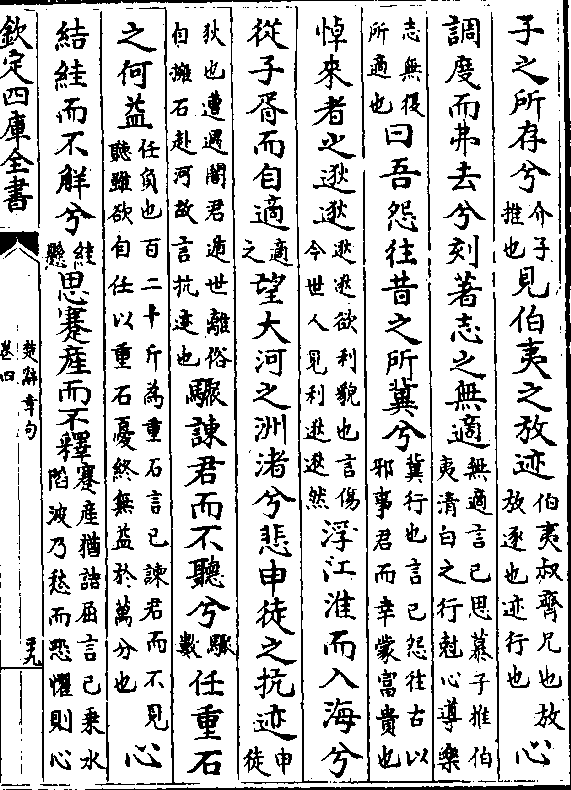 子之所存兮介子推也見伯夷之放迹伯夷叔齊兄也放放逐也迹行也心
調度而弗去兮刻著志之無適無適言已思慕子推伯夷清白之行尅心導樂
志無復所適也曰吾怨往昔之所冀兮冀行也言已怨往古以邪事君而幸蒙富貴也
悼來者之逖逖逖逖欲利貌也言傷今世人見利逖逖然浮江淮而入海兮
從子胥而自適適之望大河之洲渚兮悲申徒之抗迹申徒
狄也遭遇闇君遁世離俗自擁石赴河故言抗迹也驟諫君而不聽兮驟數任重石
之何益任負也百二十斤為重石言已諫君而不見聽雖欲自任以重石憂終無益於萬分也心
結絓而不解兮絓懸思蹇產而不釋蹇產猶詰屈言已乘水蹈波乃愁而恐懼則心
欽定四庫全書
楚辭章句
卷四